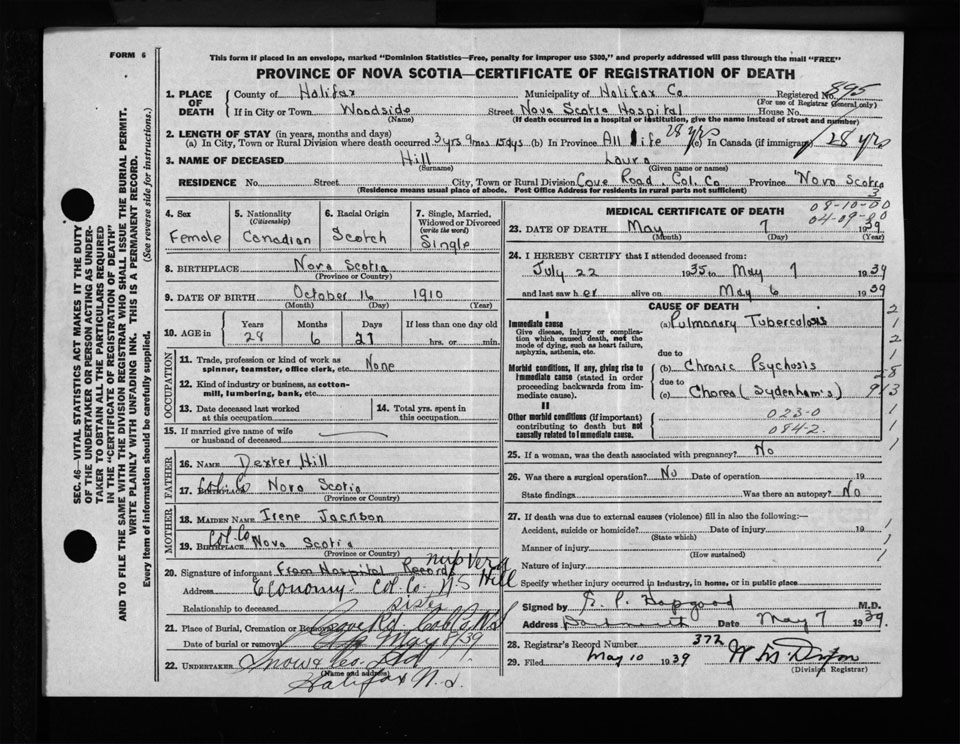 FORM 6
This form if placed in an envelope, marked "Dominion Statistics—Free, penalty for improper use $300," and properly addressed will pass through the mail "FREE"
PROVINCE OF NOVA SCOTIA—CERTIFICATE OF REGISTRATION OF DEATH
1. PLACE OF DEATH County of Halifax Municipality of Halifax Co Registered No. 895
(For use of Registrar General only)
If in City or Town Woodside Street Nova Scotia Hospital House No.
(Name) (If death occurred in a hospital or institution, give the name instead of street and number)
2. LENGTH OF STAY (in years, months and days)
(a) In City, Town or Rural Division where death occurred 3 yrs 9 mos 15 dys (b) In Province All life 28 yrs (c) In Canada (if immigrant) 28 yrs
3. NAME OF DECEASED Hill Laura
(Surname) (Given name or names)
RESIDENCE No. Street City, Town or Rural Division Cove Road, Col. Co Province Nova Scotia
(Residence means usual place of abode. Post Office Address for residents in rural parts not sufficient)
3
08-10-00
04-09-80
4. Sex Female
5. Nationality (Citizenship) Canadian
6. Racial Origin Scotch
7. Single, Married, Widowed or Divorced (write the word) Single
8. BIRTHPLACE Nova Scotia
(Province or Country)
9. DATE OF BIRTH October 16 1910
(Month) (Day) (Year)
10. AGE in Years Months Days If less than one day old
28 6 21 hrs. or min.
OCCUPATION
11. Trade, profession or kind of work as spinner, teamster, office clerk, etc. None
12. Kind of industry or business, as cotton-mill, lumbering, bank, etc.
13. Date deceased last worked at this occupation
14. Total yrs. spent in this occupation
15. If married give name of wife or husband of deceased
FATHER
16. NAME Dexter Hill
17. BIRTHPLACE Col. Co Nova Scotia
(Province or Country)
MOTHER
18. MAIDEN NAME Irene Jackson
19. BIRTHPLACE Col. Co Nova Scotia
(Province or Country)
20. Signature of informant From Hospital Records Vera Hill
Address Economy Col. Co. N.S
Relationship to deceased sister
21. Place of Burial, Cremation or Removal Cove Rd Col Co N.S
Date of burial or removal May 9/39
22. UNDERTAKER Snow & Co. Ltd
(Name and address)
Halifax N.S.
MEDICAL CERTIFICATE OF DEATH
23. DATE OF DEATH May 7 1939
(Month) (Day) (Year)
24. I HEREBY CERTIFY that I attended deceased from:
July 22 1935 to May 7 1939
and last saw her alive on May 6 1939
CAUSE OF DEATH
I
Immediate cause (a) Pulmonary Tuberculosis
Give disease, injury or complication which caused death, not the mode of dying, such as heart failure, asphyxia, asthenia, etc.
due to
Morbid conditions, if any, giving rise to immediate cause (stated in order proceeding backwards from immediate cause). (b) Chronic Psychosis
due to
(c) Chorea (Sydenham's)
II
Other morbid conditions (if important) contributing to death but not causally related to immediate cause.
023-0
084-2
25. If a woman, was the death associated with pregnancy? No
26. Was there a surgical operation? No Date of operation 19
State findings Was there an autopsy? No
27. If death was due to external causes (violence) fill in also the following:—
Accident, suicide or homicide? Date of injury 19
(State which)
Manner of injury
(How sustained)
Nature of injury
Specify whether injury occurred in industry, in home, or in public place
Signed by E. P. Hapgood M.D.
Address Dartmouth Date May 7 1939.
28. Registrar's Record Number 372
29. Filed May 10 1939
(Division Registrar)
SEC. 46—VITAL STATISTICS ACT MAKES IT THE DUTY
OF THE UNDERTAKER OR PERSON ACTING AS UNDER-
TAKER TO OBTAIN ALL THE PARTICULARS REQUIRED
IN THE "CERTIFICATE OF REGISTRATION OF DEATH"
AND TO FILE THE SAME WITH THE DIVISION REGISTRAR WHO SHALL ISSUE THE BURIAL PERMIT.
WRITE PLAINLY WITH UNFADING INK. THIS IS A PERMANENT RECORD.
Every item of information should be carefully supplied. (See reverse side for instructions.)